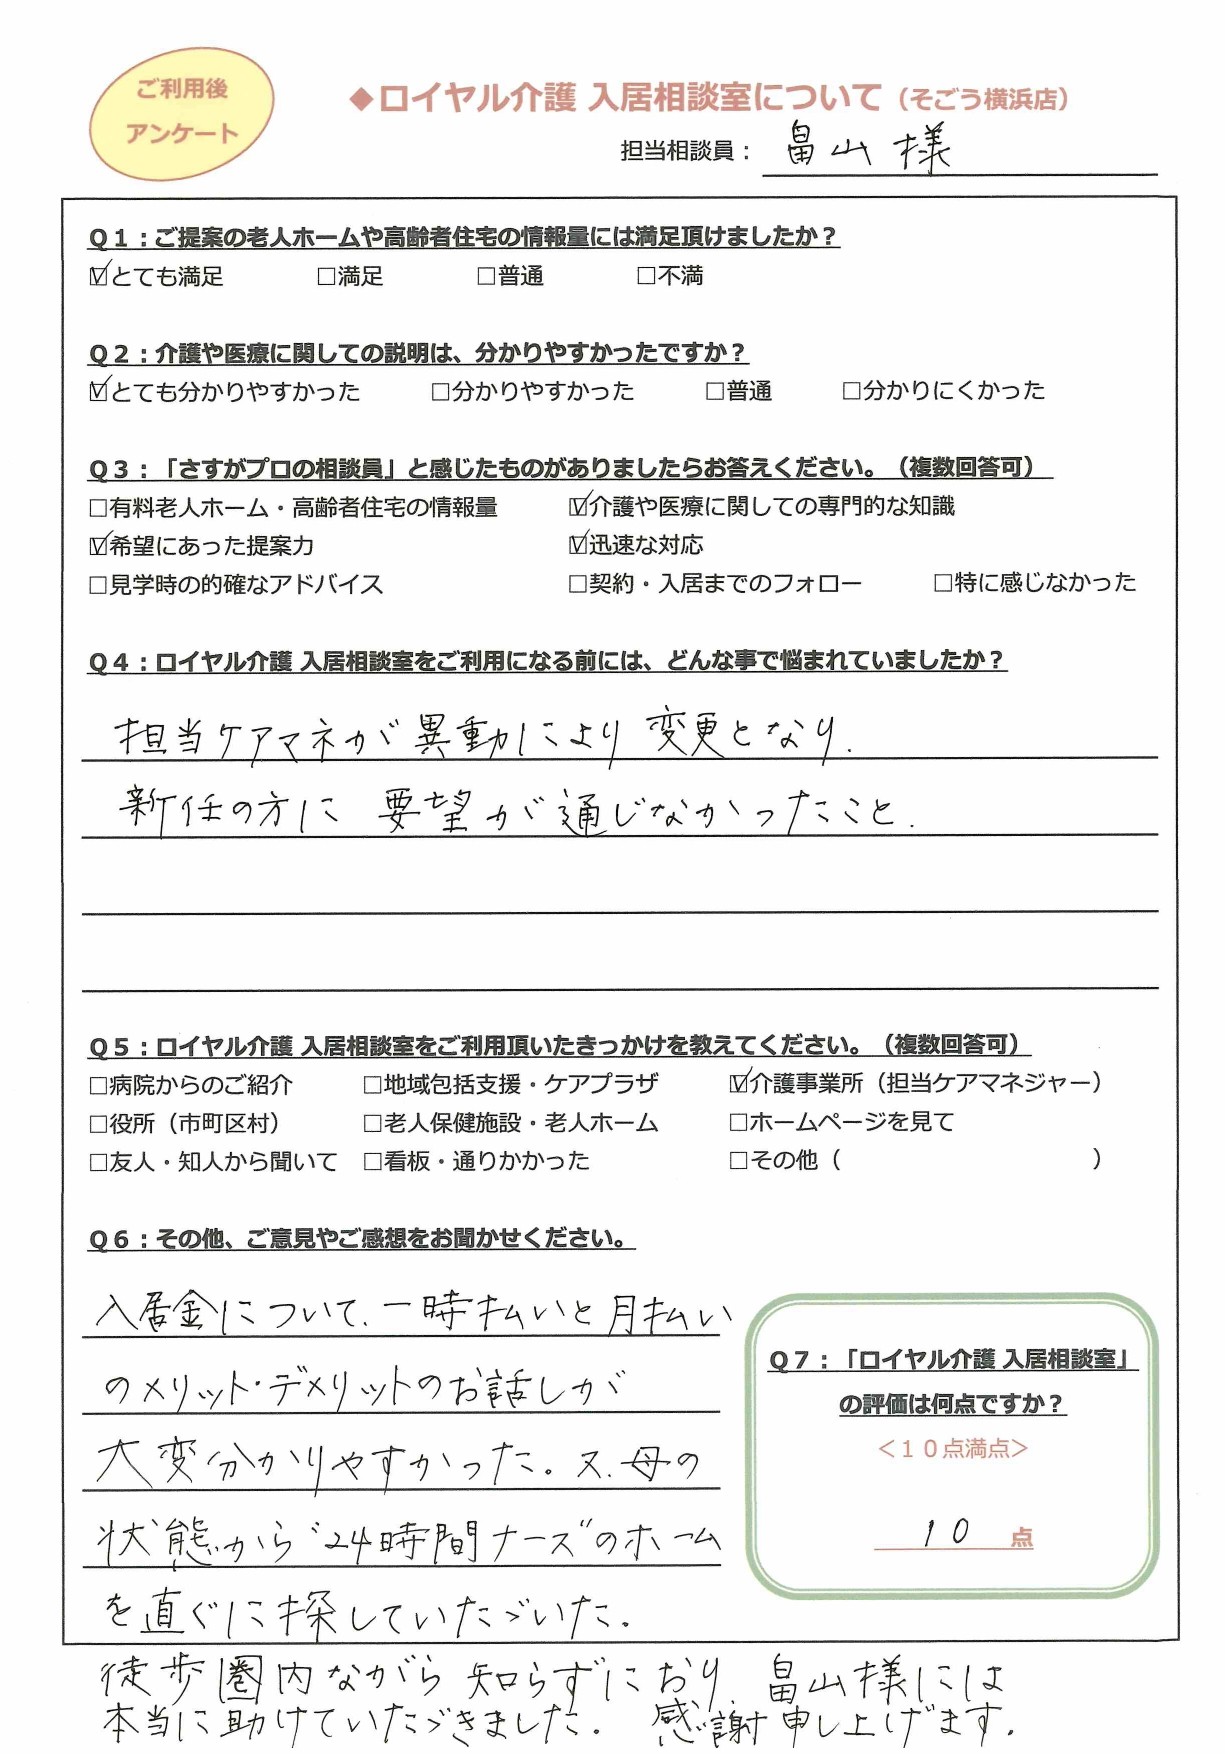 ご利用後
アンケート
◆ロイヤル介護 入居相談室について（そごう横浜店）
担当相談員： 畠山様
Q1：ご提案の老人ホームや高齢者住宅の情報量には満足頂けましたか？
☑とても満足 □満足 □普通 □不満
Q2：介護や医療に関しての説明は、分かりやすかったですか？
☑とても分かりやすかった □分かりやすかった □普通 □分かりにくかった
Q3：「さすがプロの相談員」と感じたものがありましたらお答えください。（複数回答可）
□有料老人ホーム・高齢者住宅の情報量 ☑介護や医療に関しての専門的な知識
☑希望にあった提案力 ☑迅速な対応
□見学時の的確なアドバイス □契約・入居までのフォロー □特に感じなかった
Q4：ロイヤル介護 入居相談室をご利用になる前には、どんな事で悩まれていましたか？
担当ケアマネが異動により変更となり、
新任の方に 要望が通じなかったこと.
Q5：ロイヤル介護 入居相談室をご利用頂いたきっかけを教えてください。（複数回答可）
□病院からのご紹介 □地域包括支援・ケアプラザ ☑介護事業所（担当ケアマネジャー）
□役所（市町区村） □老人保健施設・老人ホーム □ホームページを見て
□友人・知人から聞いて □看板・通りかかった □その他（ ）
Q6：その他、ご意見やご感想をお聞かせください。
入居金について、一時払いと月払い
のメリット・デメリットのお話しが
大変分かりやすかった。又、母の
状態から"24時間ナース"のホーム
を直ぐに探していただいた.
徒歩圏内ながら知らずにおり、畠山様には
本当に助けていただきました. 感謝申し上げます.
Q7：「ロイヤル介護 入居相談室」
の評価は何点ですか？
＜10点満点＞
10 点